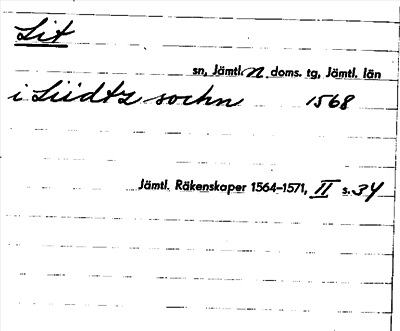 Lit
sn, Jämtl. n doms. tg, Jämtl. län
i Liidtz sochn 1568
Jämtl. Räkenskaper 1564-1571, II s. 34